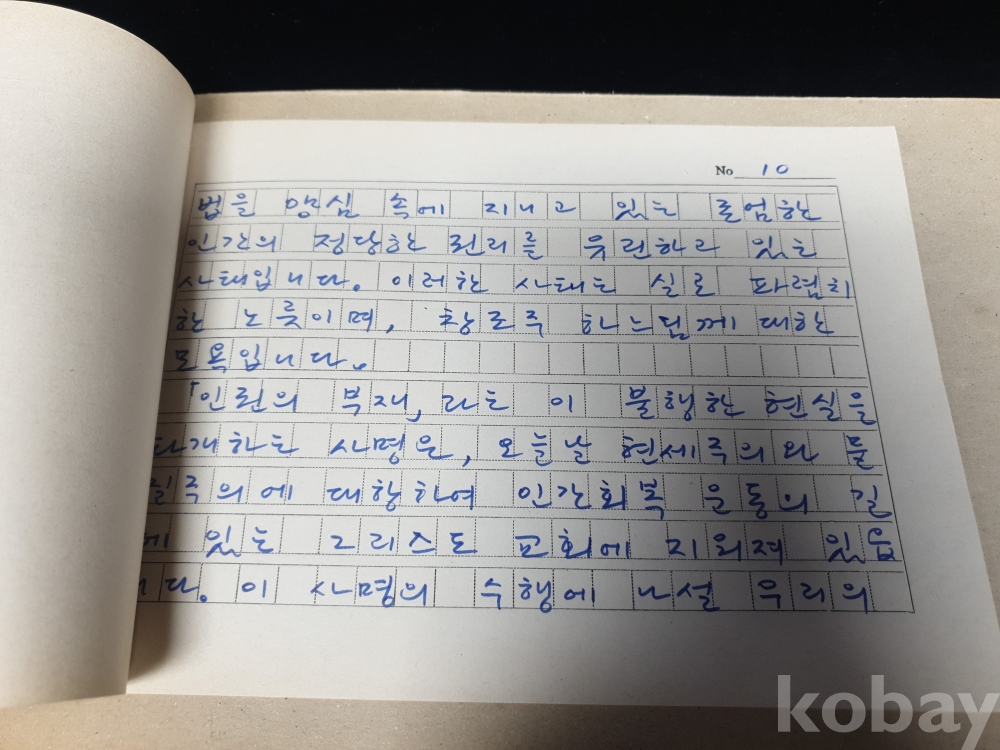 No 10
법을 양심 속에 지니고 있는 존엄한
인간의 정당한 권리를 유린하고 있는
사태입니다. 이러한 사태는 실로 파렴치
한 노릇이며, 창조주 하느님께 대한
모욕입니다.
「인권의 부재」라는 이 불행한 현실을
타개하는 사명은, 오늘날 현세주의와 물
질주의에 대항하여 인간회복 운동의 길
에 있는 그리스도 교회에 지워져 있읍
니다. 이 사명의 수행에 나설 우리의
kobay